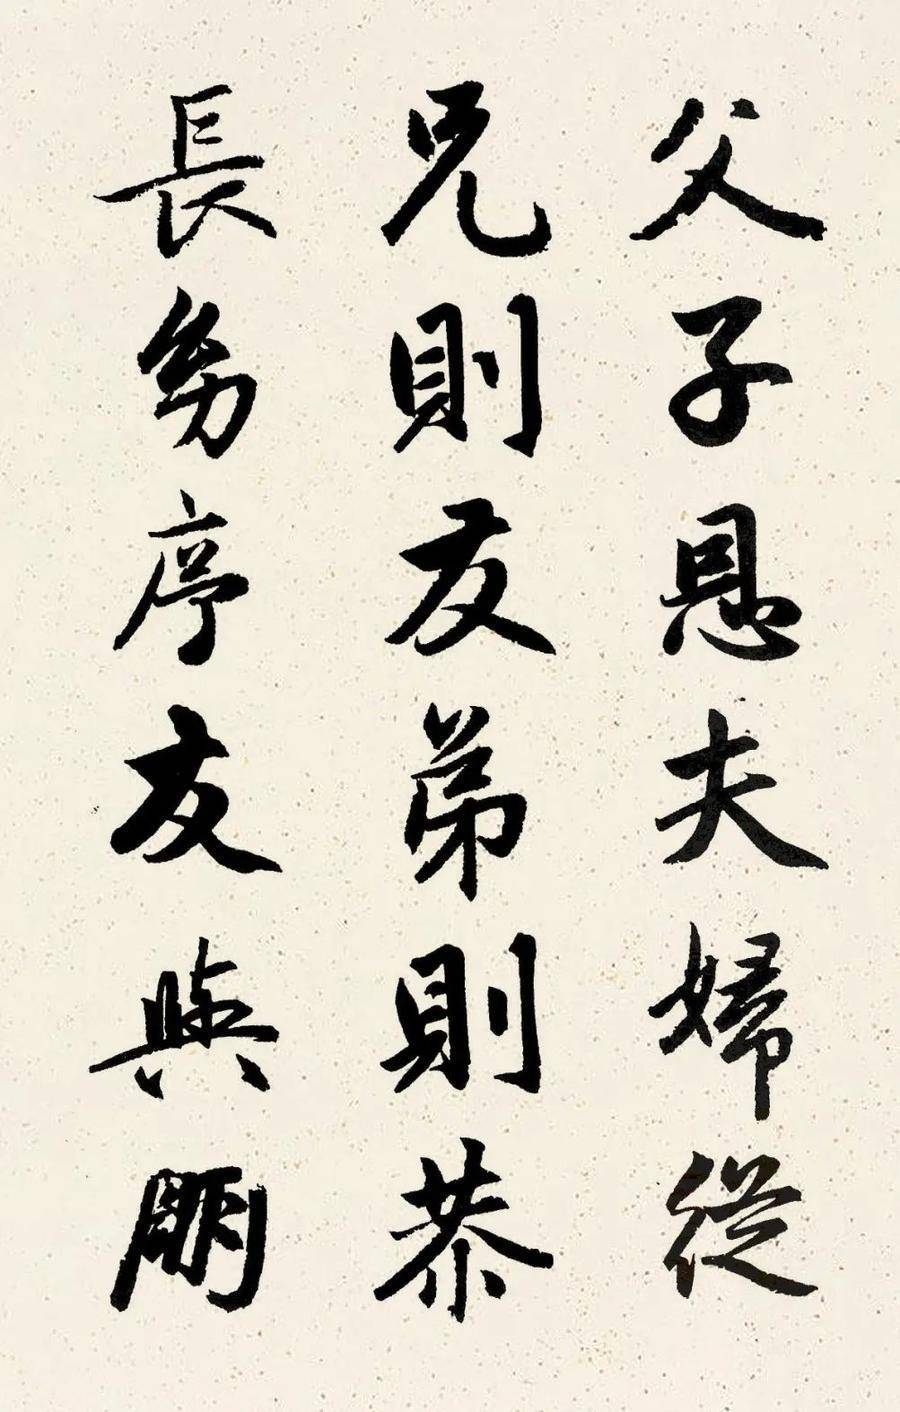 父子恩夫婦從
兄則友弟則恭
長幼序友與朋